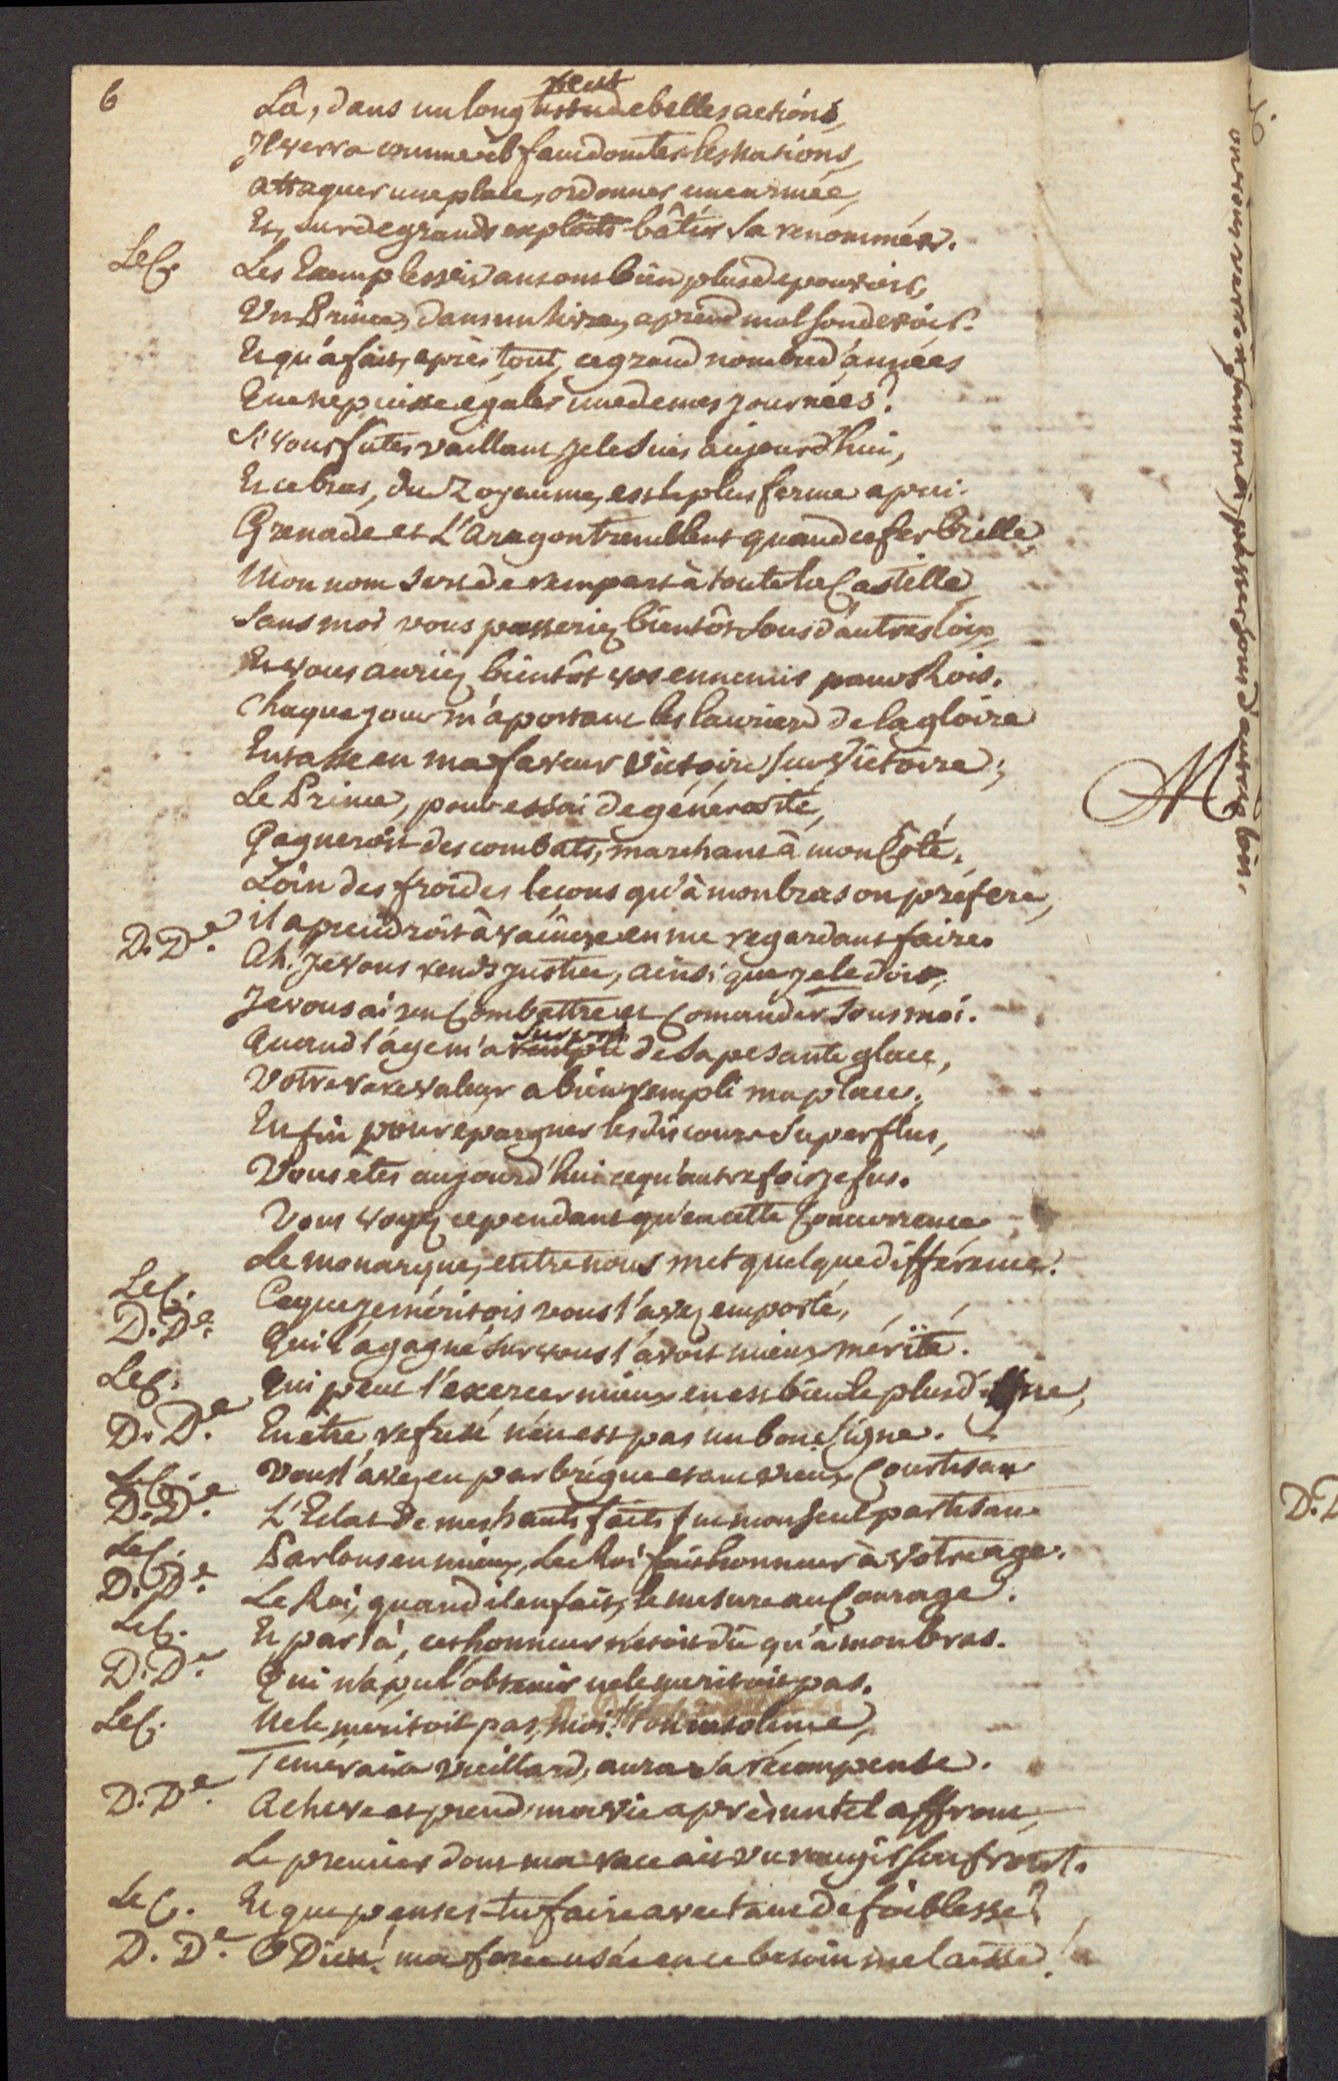 6
Là, dans un long tissu de belles actions,
récit
Il verra comme il faut domter les nations,
attaquer une place, ordonner une armée,
Et, sur de grands exploits bâtir sa renommée.
Le C. Les Exemples vivans ont bien plus de pouvoir,
Un Prince, dans un livre, aprend mal son devoir.
Et qu'a fait, après tout, ce grand nombre d'années
Que ne puisse égaler une de mes journées?
Si vous futes vaillant je le suis aujourd'hui,
Et ce bras, du Royaume, est le plus ferme apui.
Grenade et L'Aragon tremblent quand ce fer brille,
Mon nom sert de rempart à toute la Castille,
Sans moi vous passeriez bientôt sous d'autres loix,
Et vous auriez bientôt vos ennemis pour Rois.
Chaque jour m'aportant les lauriers de la gloire
Entasse en ma faveur victoire sur Victoire;
Le Prince, pour essai de générosité,
Gagneroit des combats, marchant à mon Côté,
Loin des froides leçons qu'à mon bras on préfere,
il aprendroit à vaincre en me regardant faire.
D. De. Ah! Je vous rends justice, ainsi que je le dois,
Je vous ai vu Combattre et Comander sous moi.
surpris
Quand l'âge m'a rempli de sa pesante glace,
Votre rare valeur a bien rempli ma place;
Enfin pour epargner les discours superflus,
Vous êtes aujourd'hui ce qu'autrefois je fus.
Vous voyez cependant qu'en cette Concurrence
Le monarque, entre nous met quelque différence.
Le C. Ce que je méritois vous l'avez emporté,
D. De. Qui l'a gagné sur vous l'avoit mieux mérité.
Le C. Qui peut l'exercer mieux en est bien le plus digne,
D. De. En être refusé n'en est pas un bon Signe.
Le C. Vous l'avez eu par brigue etant vieux Courtisan
D. De. L'Eclat de mes hauts faits fut mon seul partisan
Le C. Parlons en mieux, Le Roi fait honneur à votre age.
D. De. Le Roi, quand il en fait, le mesure au Courage.
Le C. Et par là, cet honneur n'etoit dû qu'à mon bras.
D. De. Qui n'a pu l'obtenir ne le meritoit pas.
Le C. Ne le meritoit pas, moi! Ton insolence,
Temeraire vieillard, aura sa récompense.
D. De. Acheve et prend ma vie après un tel affront,
Le premier dont ma race ait vu rougir son front.
Le C. Et que penses-tu faire avec tant de foiblesse?
D. De. O Dieu! ma force usée en ce besoin me laisse!
M
sans moi, passer sous d'autres loix.